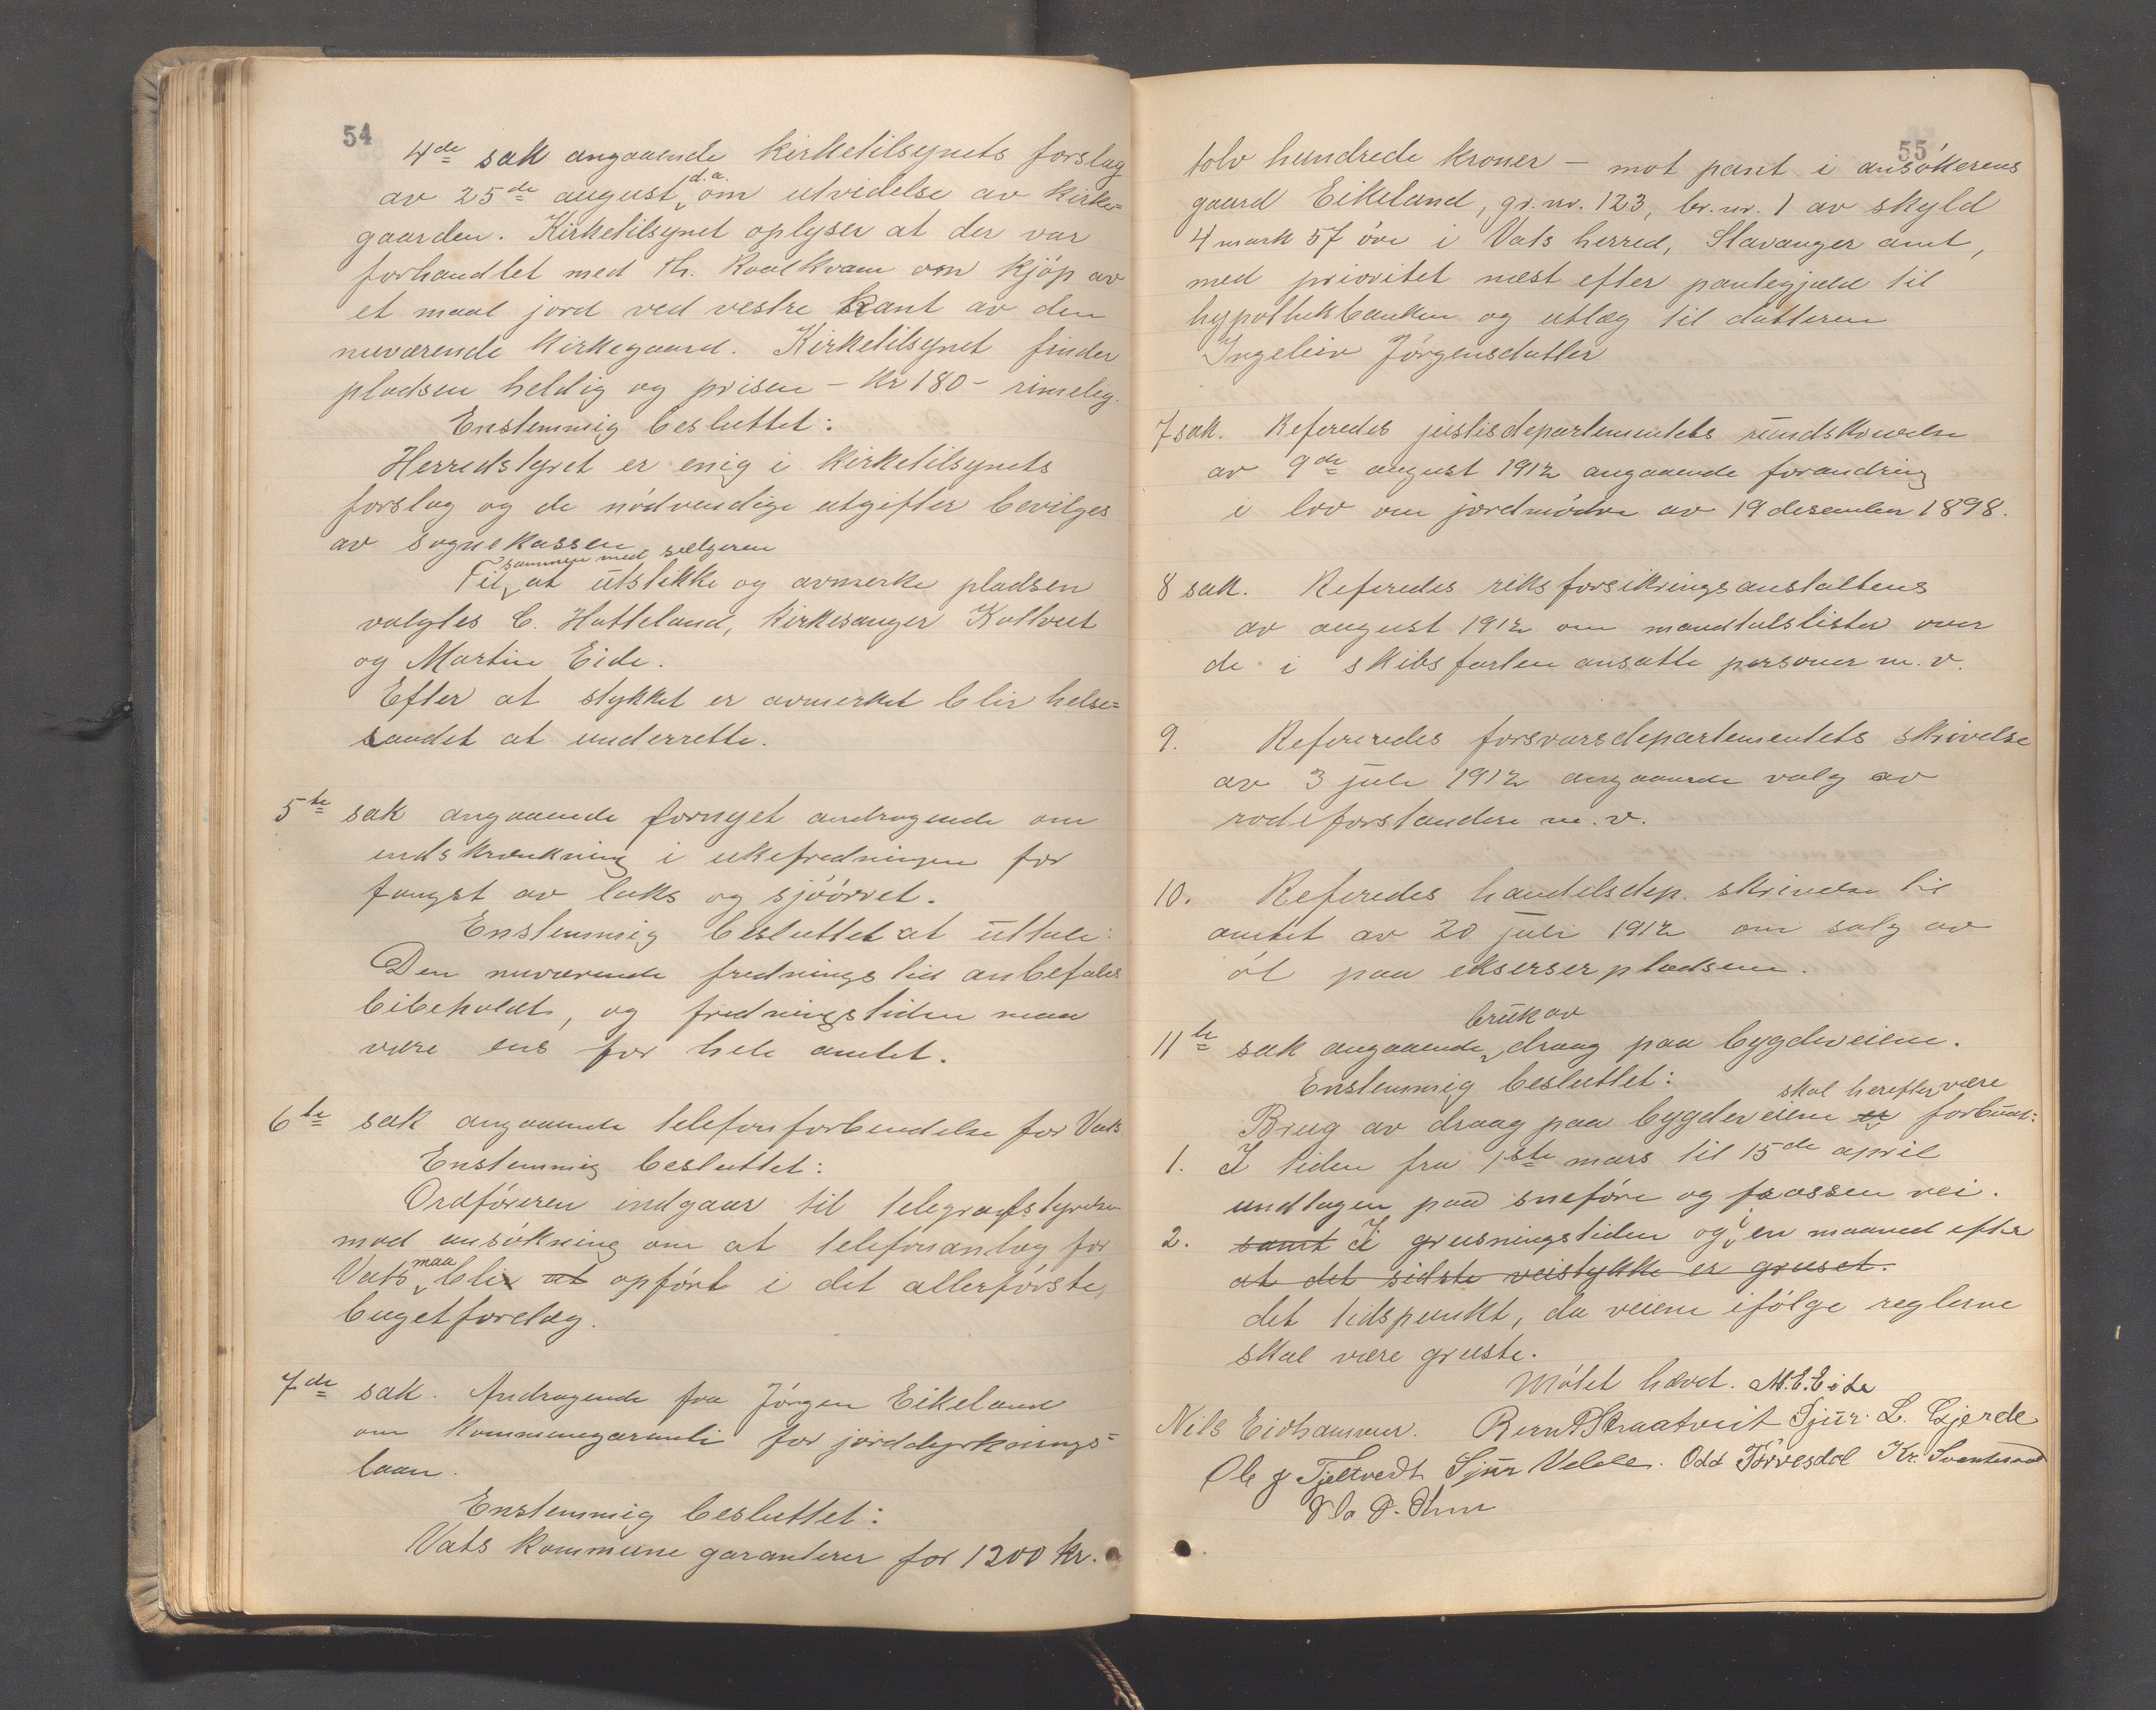 54
4de sak angaaende kirketilsynets forslag
av 25de august d.a. om utvidelse av kirke=
gaarden. Kirketilsynet oplyser at der var
forhandlet med Th. Roalkvam om kjöp av
et maal jord ved vestre kant av den
nuværende kirkegaard. Kirketilsynet finder
pladsen heldig og prisen - kr 180 - rimelig.
Enstemmig besluttet:
Herredstyret er enig i kirketilsynets
forslag og de nödvendige utgifter bevilges
av sognekassen
Til sammen med sælgeren at utstikke og avmerke pladsen
valgtes C. Hatteland, kirkesanger Kallveit
og Martin Eide.
Efter at stykket er avmerket blir helse=
raadet at underrette.
5te sak angaaende fornyet andragende om
endskrænkning i ukefredningen for
fangst av laks og sjöörret.
Enstemmig besluttet at uttale:
Den nuværende fredningstid anbefales
bibeholdt, og fredningstiden maa
være ens for hele amtet.
6te sak angaaende telefonforbindelse for Vats
Enstemmig besluttet:
Ordföreren indgaar til telegrafstyrelsen
med ansökning om at telefonanlæg for
Vats maa bli at opfört i det allerförste
bugetforelæg.
7de sak. Andragende fra Jörgen Eikeland
om kommunegaranti for jorddyrknings=
laan.
Enstemmig besluttet:
Vats kommune garanterer for 1200 kr.
55
tolv hundrede kroner - mot pant i ansökerens
gaard Eikeland, gr. nr. 123, br. nr. 1 av skyld
4 mark 57 öre i Vats herred, Stavanger amt,
med prioritet næst efter pantegjæld til
hypothekbanken og utlæg til datteren
Ingeleiv Jörgensdatter
7 sak. Referedes justisdepartementets rundskrivelse
av 9de august 1912 angaaende forandring
i lov om jordmödre av 19 desember 1898.
8 sak. Referedes riksforsikringsanstaltens
av august 1912 om mandtalslister over
de i skibsfarten ansatte personer m. v.
9. Refereredes forsvarsdepartementets skrivelse
av 3 juli 1912 angaaende valg av
rodeforstandere m. v.
10. Referedes handelsdep. skrivelse til
amtet av 20 juli 1912 om salg av
öl paa ekserserpladsene.
11te sak angaaende bruk av draag paa bygdeveiene.
Enstemmig besluttet:
Brug av draag paa bygdeveiene er skal herefter være forbudt:
1. I tiden fra 1ste mars til 15de april
undtagen paa sneföre og frossen vei.
2. samt I grusningstiden og i en maaned efter
at det sidste veistykke er gruset.
det tidspunkt, da veiene ifölge reglerne
skal være gruste.
Mötet hævd. M. E. Eide
Nils Eidhammer. Bernt Straatveit Sjur L. Gjerde
Ole J Fjeltvedt Sjur Velde. Odd Törvesdal Kr.